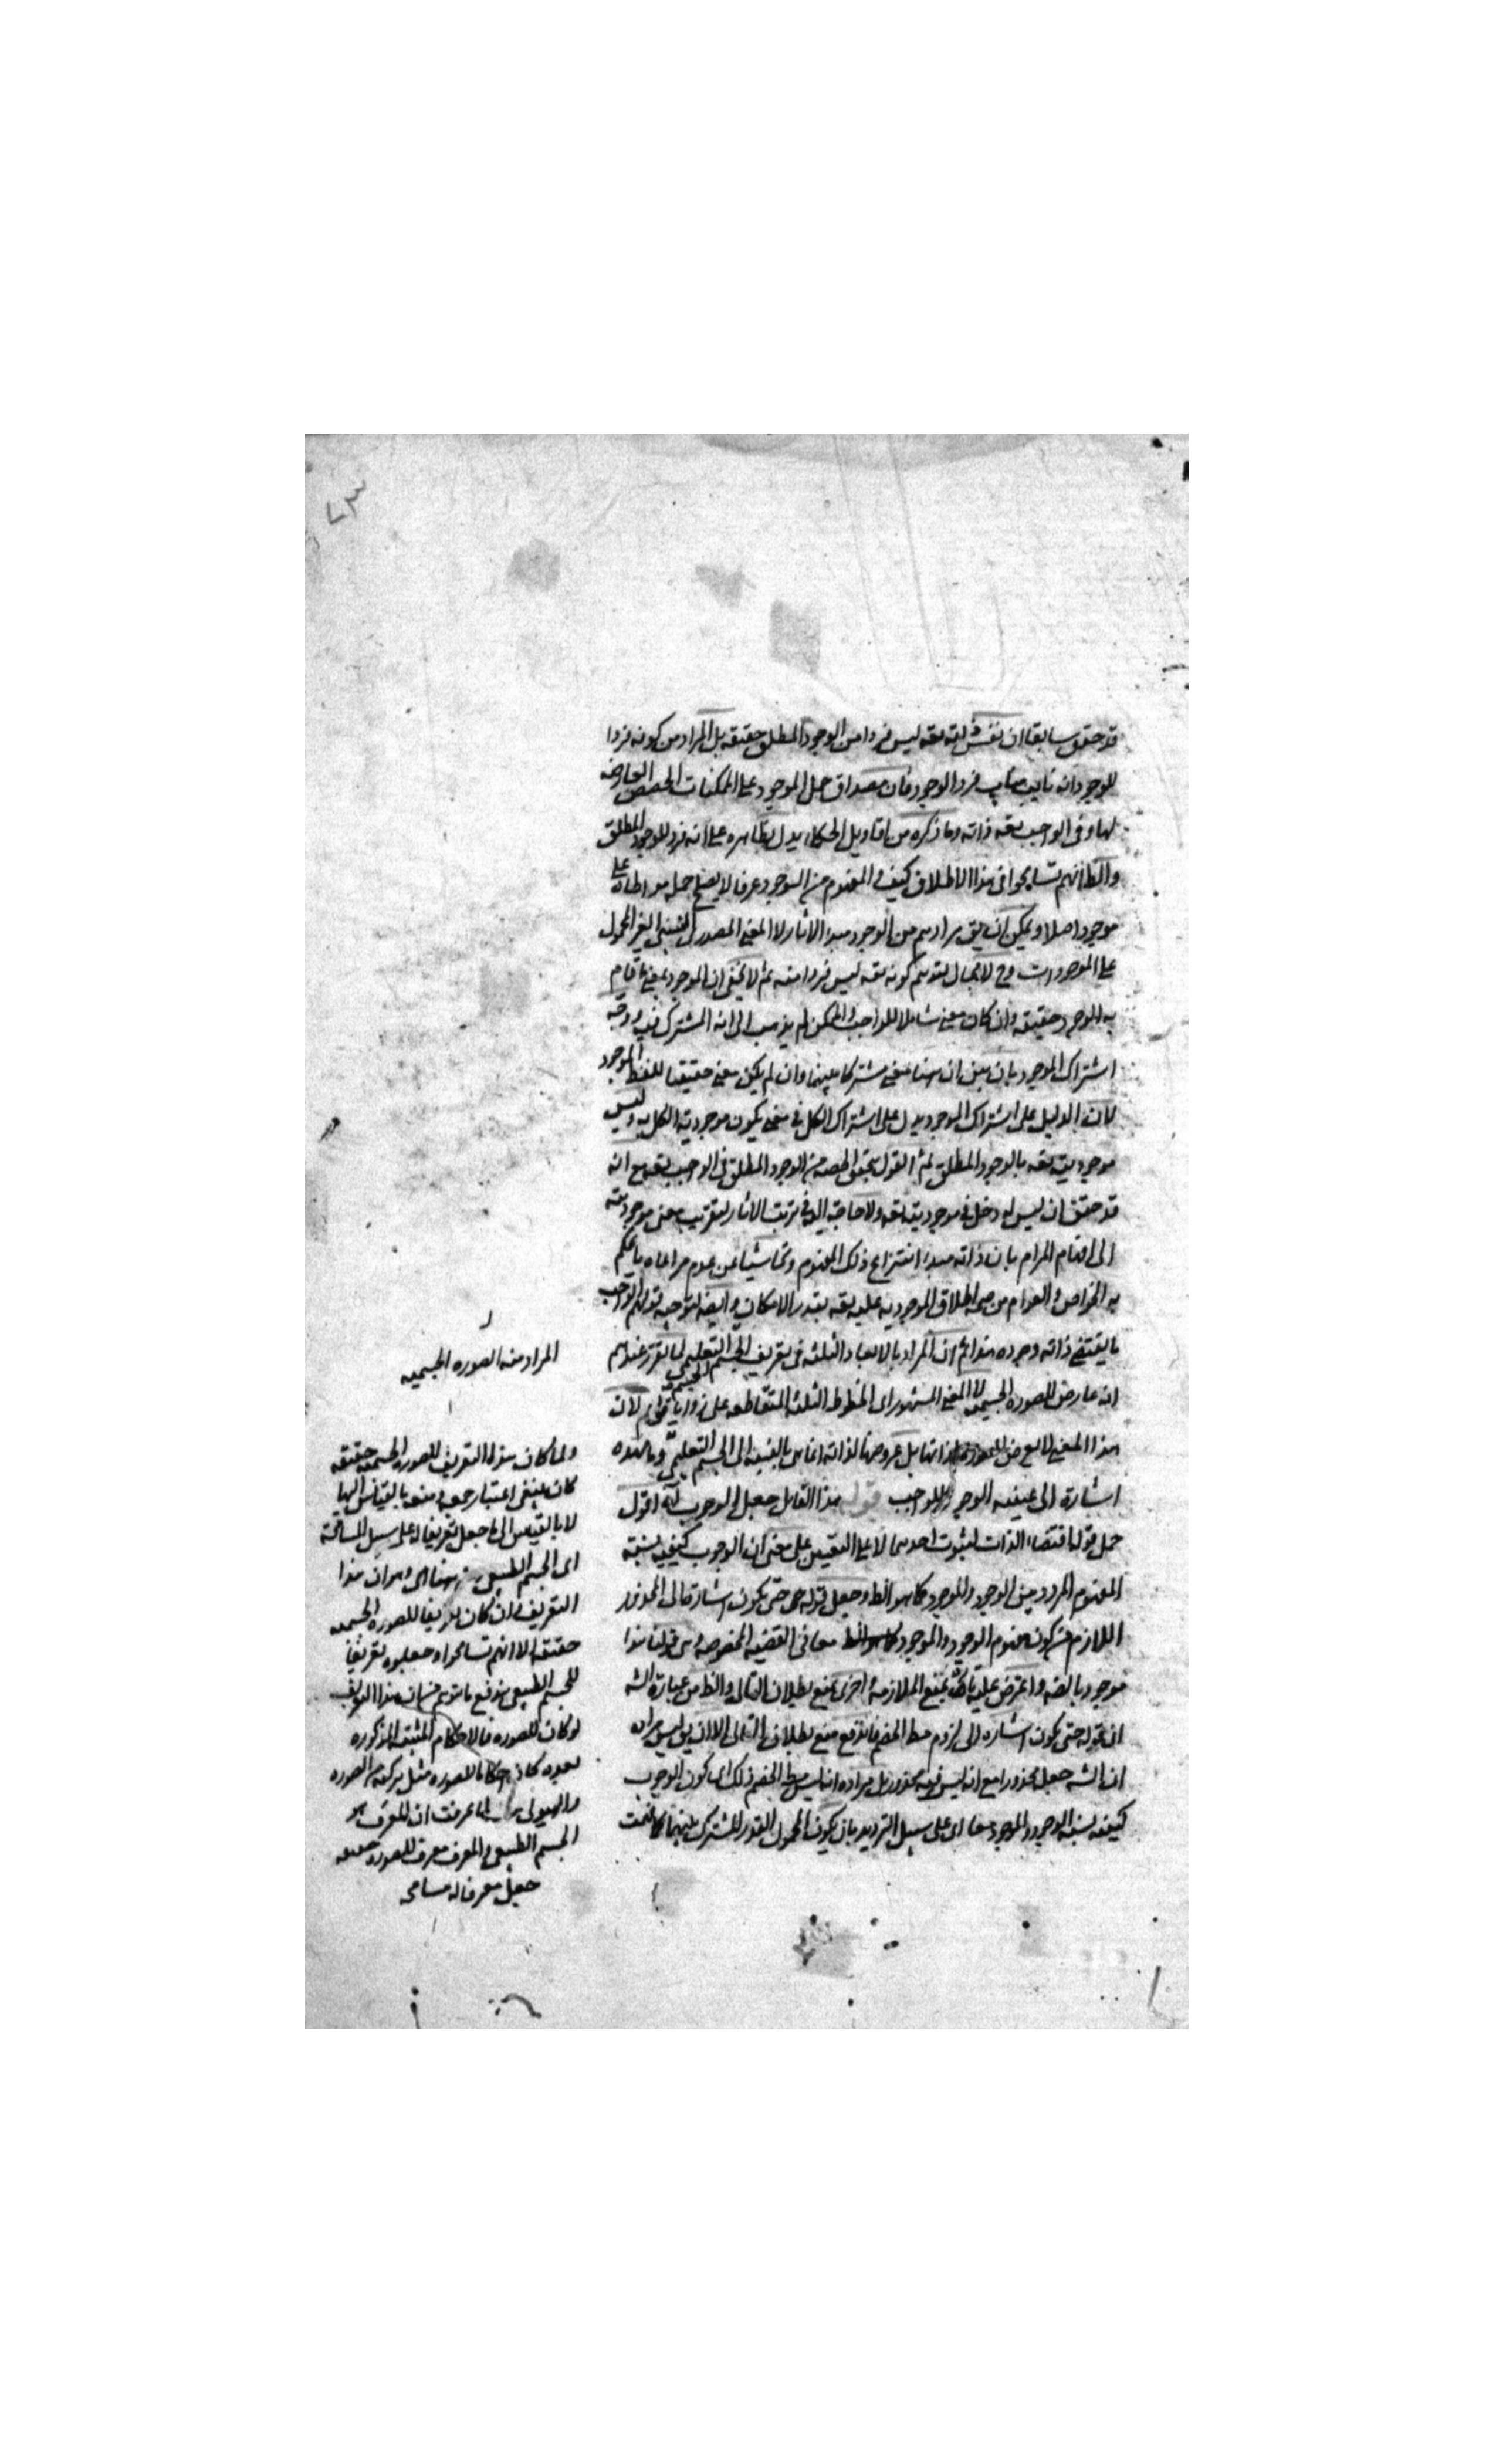 ٧٣
قد حقق سابقا ان نفس ذاته تعه ليس فردا من الوجود المطلق حقيقه بل المراد من كونه فردا
للوجود انه نايب مناب فرد الوجود فان مصداق حمل الموجود على الممكنات الحصص العارضه
لها وفى الواجب تعه ذاته وما ذكره من اقاويل الحكماء يدل بظاهره على انه فرد للوجود المطلق
والظ انهم تسامحوا فى هذا الاطلاق كيف و المفهوم من الوجود عرفا لا يصح حمله مواطاة على
موجود اصلا ويمكن ان يق مرادهم من الوجود مبدء الاثار لا المعنى المصدرى النسبى الغير المحمول
على الموجودات وح لا مجال لتوهم كونه تعه ليس فردا منه ثم لا يخفى ان الموجود بمعنى ما قام
به الوجود حقيقه وان كان معنى شاملا للواجب والممكن لم يذهب الى انه المشترك فيه
اشتراك الموجود بان يبين ان هنا معنى مشتركا بينهما وان لم يكن معنى حقيقيا للفظ الموجود
لان الدليل على اشتراك الموجود يدل على اشتراك الكل فى معنى يكون موجودية الكل به وليس
موجوديته تعه بالوجود المطلق ثم القول بتحقق الحصه من الوجود المطلق فى الواجب تعه مع انه
قد حقق ان ليس له دخل فى موجوديته تعه ولا حاجة اليه فى ترتب الاثار لتقريب معنى موجوديته
الى افهام المرام بان ذاته مبدء انتزاع ذلك المفهوم وتحاشيا عن عدم مراعاه ما يحكم
به الخواص و العوام من صحه اطلاق الموجوديه عليه تعه بقدر الامكان و ايضه لتوجيه قولهم الواجب
ما يقتضى ذاته وجوده ان المراد بالابعاد الثلثه فى تعريف الجسم التعليمى لما تقرر عندهم
انه عارض للصوره الجسميه لا المعنى المشهور اى الخطوط الثلثه المتقاطعه على زوايا قوائم لان
هذا المعنى لا يعرض لذاتها بل عروضها لذاته انما هى بالنسبه الى الجسم التعليمى
اشارة الى عينيه الوجود للواجب قوله هذا القايل جعل الوجوب آه اقول
حمل قوله اقتضاء الذات لثبوت احدهما لا على التعيين على معنى ان الوجوب كيفيه نسبة
المفهوم المردد بين الوجود والموجود كما هو الظ وجعل قوله حتى يكون اشارة الى المحذور
اللازم من كون مفهوم الوجود والموجود معا فى القضيه المخصوصه وهى قولنا هذا
موجود بالضه واعترض عليه تارة بمنع الملازمة و اخرى بمنع بطلان التالى والظ من عبارة الشه
ان قوله حتى يكون اشاره الى لزوم فاندفع منع بطلان التالى الا ان يق ليس مراده
ان الشه جعل محذورا مع انه ليس فيه محذور بل مراده انه ليس ذلك اى كون الوجوب
كيفيه نسبة الوجود والموجود معا اى على سبيل الترديد بان يكون المحمول القدر المشترك بينهما كما فهمت
المراد منه الصوره الجسميه
ولما كان هذا التعريف للصوره الجسميه حقيقه
كان ينبغى اعتبار جمعه ومنعه بالقياس اليها
لا بالقياس الى ما جعل تعريفا له على سبيل المسامحة
اى الجسم الطبيعى وهو ان هذا
التعريف وان كان تعريفا للصوره الجسميه
حقيقه الا انهم تسامحوا وجعلوه تعريفا
للجسم الطبيعى فاندفع ما توهم من ان هذا التعريف
لو كان للصوره فالاحكام المثبته المذكوره
بعده كانت احكاما للصوره مثل تركبه من الصوره
والهيولى لما عرفت ان المعرف هو
الجسم الطبيعى و المعرف معرف للصوره حقيقه
جعل معرفا له مسامحه